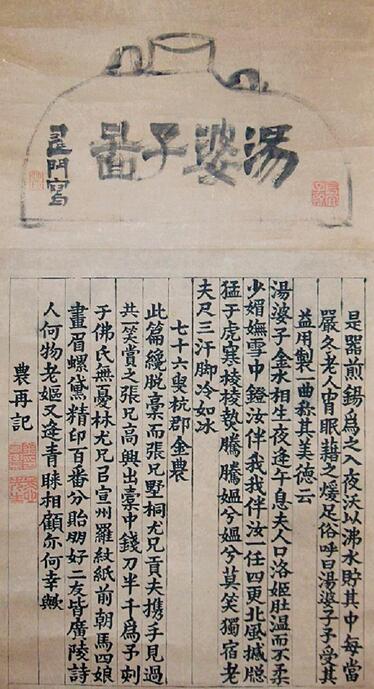 湯婆子啚
壽門寫
是器煎錫爲之入夜沃以沸水貯其中每當
嚴冬老人宵眠藉之煖足俗呼曰湯婆子予受其
益用製一曲称其美德云
湯婆子金水相生夜逢午息夫人口洛姬肚温而不柔
少媚嫵雪中鐙汝伴我我伴汝一任四更北風撼牎
猛于虎寒棱棱鼓騰騰媼兮媼兮莫笑獨宿老
夫尺三汗脚冷如冰
七十六叟杭郡金農
此篇纔脫稾而張兄墅桐尤兄貢夫携手見過
共一笑賞之張兄高興出橐中錢刀半千爲予刺
于佛氏無憂林尤兄召宣州羅紋紙前朝馬四娘
畫眉螺黛精印百番分貽朋好二友皆廣陵詩
人何物老嫗又逢青睞相顧亦何幸歟
農再記